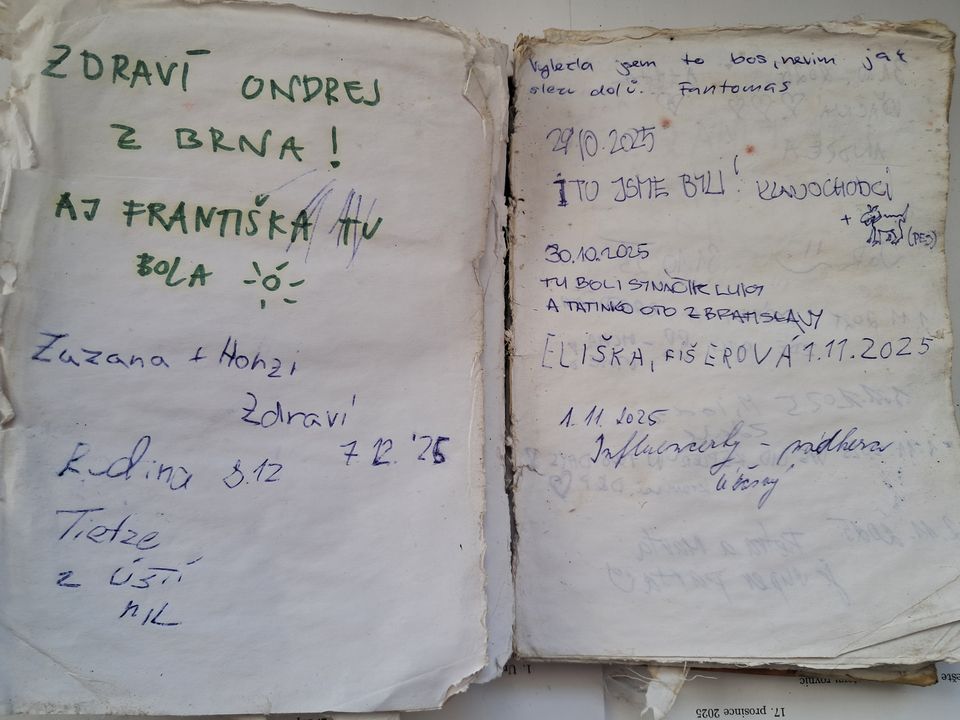 ZDRAVÍ ONDREJ
Z BRNA!
AJ FRANTIŠKA TU
BOLA
Zuzana + Honzi
Zdraví
7.12.'25
Rodina 8.12
Tietze
z ÚSTÍ
n/L
Vylezla jsem to bos, nevim jak
slezu dolů. Fantomas
29/10.2025
TU JSME BYLI!
+ (PES)
30.10.2025
TU BOLI SYNÁČIK LUIGI
A TATINKO OTO Z BRATISLAVY
ELIŠKA, FIŠEROVÁ 1.11.2025
1.11.2025
Influencerky - nádhera
Úžasný
17. prosince 2025